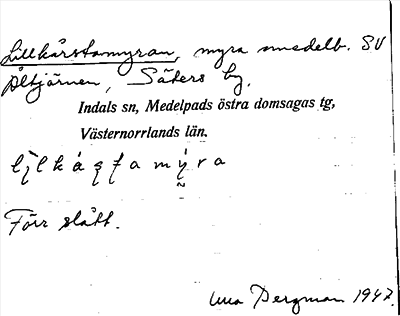 Lillkårstamyran, myra omedelb. SV
Åltjärnen, Säters by.
Indals sn, Medelpads östra domsagas tg,
Västernorrlands län.
Förr slått.
Una Bergman 1947.